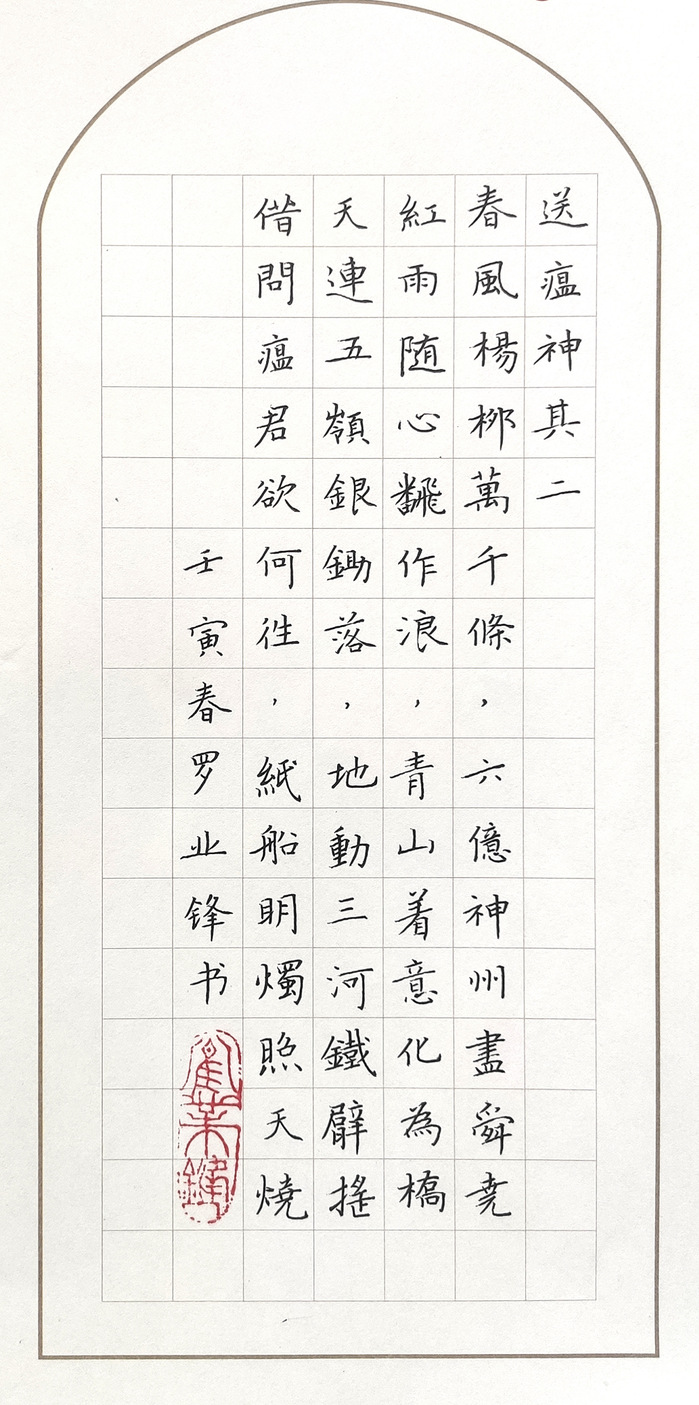 送瘟神其二
春風楊栁萬千條，六億神州盡舜尭
紅雨随心飜作浪，青山着意化為橋
天連五嶺銀鋤落，地動三河鐵臂搖
借問瘟君欲何往，紙船明燭照天燒
壬寅春罗业锋书
羅業鋒